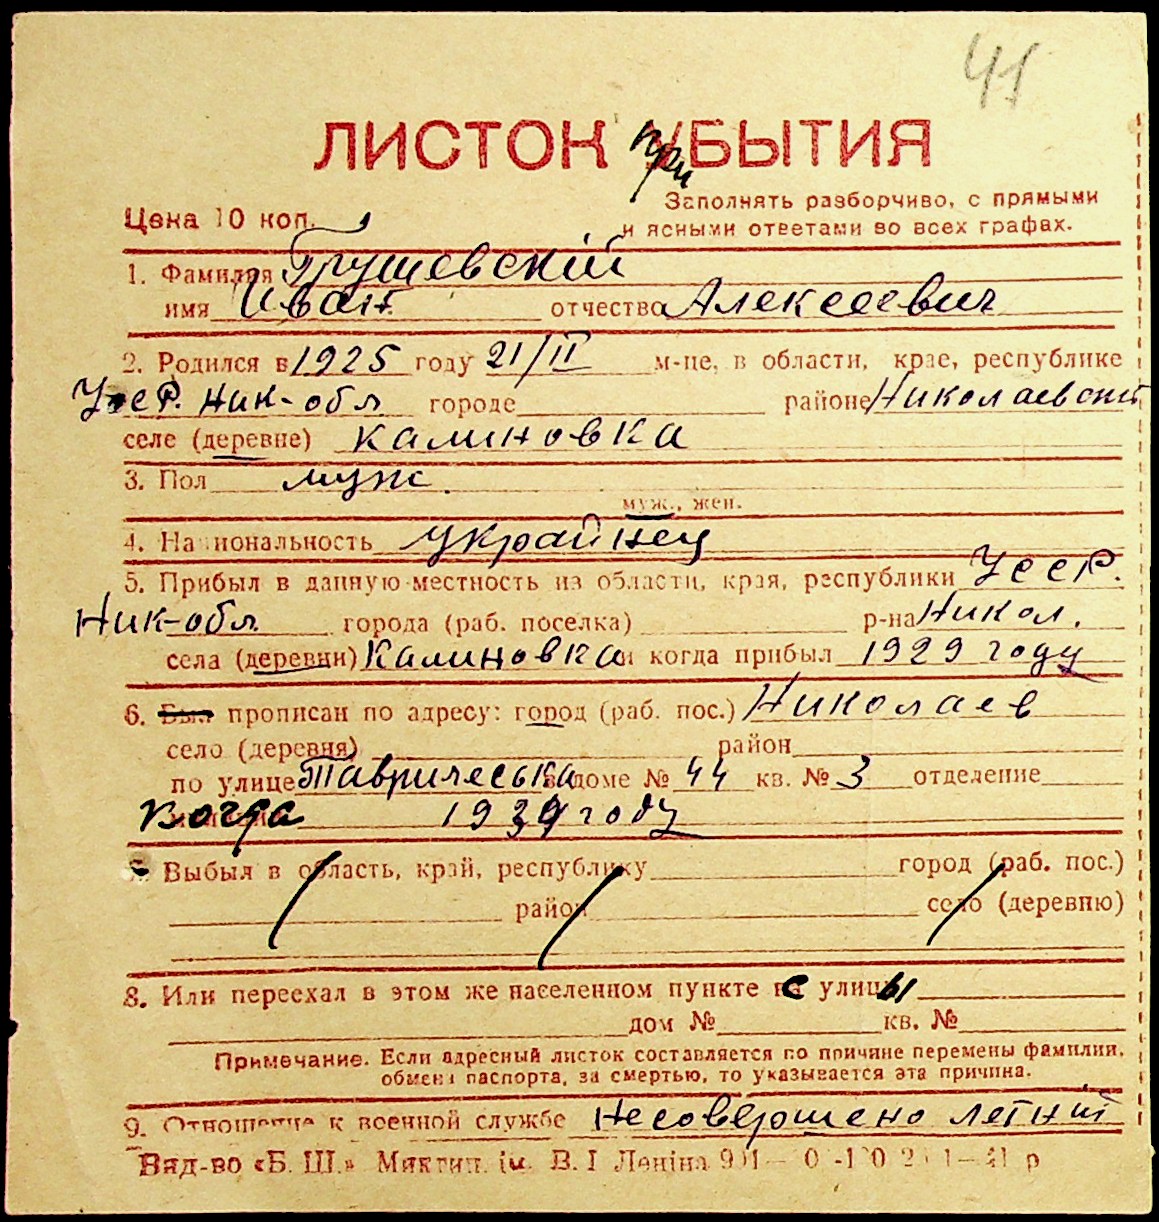 41
ЛИСТОК УБЫТИЯ
при
Заполнять разборчиво, с прямыми
Цена 10 коп. и ясными ответами во всех графах.
1. Фамилия Грушевский
имя Иван отчество Алексеевич
2. Родился в 1925 году 21/II м-це, в области, крае, республике
УССР. Ник-обл городе районе Николаевский
селе (деревне) Калиновка
3. Пол муж.
муж., жен.
4. Национальность украинец
5. Прибыл в данную местность из области, края, республики УССР.
Ник-обл. города (раб. поселка) р-на Никол.
села (деревни) Калиновка и когда прибыл 1929 году
6. Был прописан по адресу: город (раб. пос.) Николаев
село (деревня) район
по улице Тавричеська в доме № 44 кв. № 3 отделение
когда 1939 году
Выбыл в область, край, республику город (раб. пос.)
район село (деревню)
8. Или переехал в этом же населенном пункте с улицы
дом № кв. №
Примечание. Если адресный листок составляется по причине перемены фамилии,
обмена паспорта, за смертью, то указывается эта причина.
9. Отношение к военной службе Несовершено летний
Вид-во «Б. Ш.» Миктип. ім. В. І Леніна